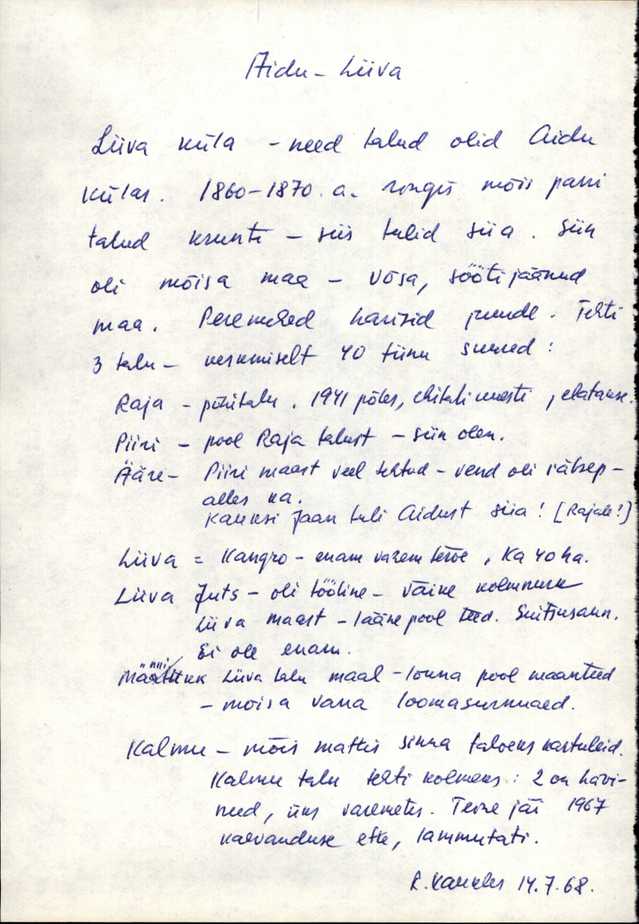 Aidu - Liiva
Liiva küla - need talud olid Aidu
külas. 1860-1870. a. mõis pani
talud krunti - siis tulid siia. Siin
oli mõisa maa - võsa, söötijäänud
maa. Peremehed harisid juurde. Tehti
3 talu - keskmiselt 40 tiinu suured:
Raja - põhitalu. 1941 põles, ehitati uuesti, elatakse.
Piiri - pool Raja talust - siin olen.
Ääre - Piiri maast veel tehtud - vend oli rätsep -
alles ka.
Kauksi Jaan tuli Aidust siia! [Rajale!]
Liiva = Kangro - enam varem terve, ka 40 ha.
Liiva Juts - oli tööline - väike kolmnurk
Liiva maast - lääne pool teed. Suitsusaun.
Ei ole enam.
Liiva talu maal - lõuna pool maanteed
- mõisa vana loomasurnuaed.
Kalmu - mõis mattis sinna talveks kartuleid.
Kalmu talu tehti kolmeks: 2 on hävi-
nud, üks varemetes. Teine jäi 1967
kaevanduse ette, lammutati.
14.7.68.